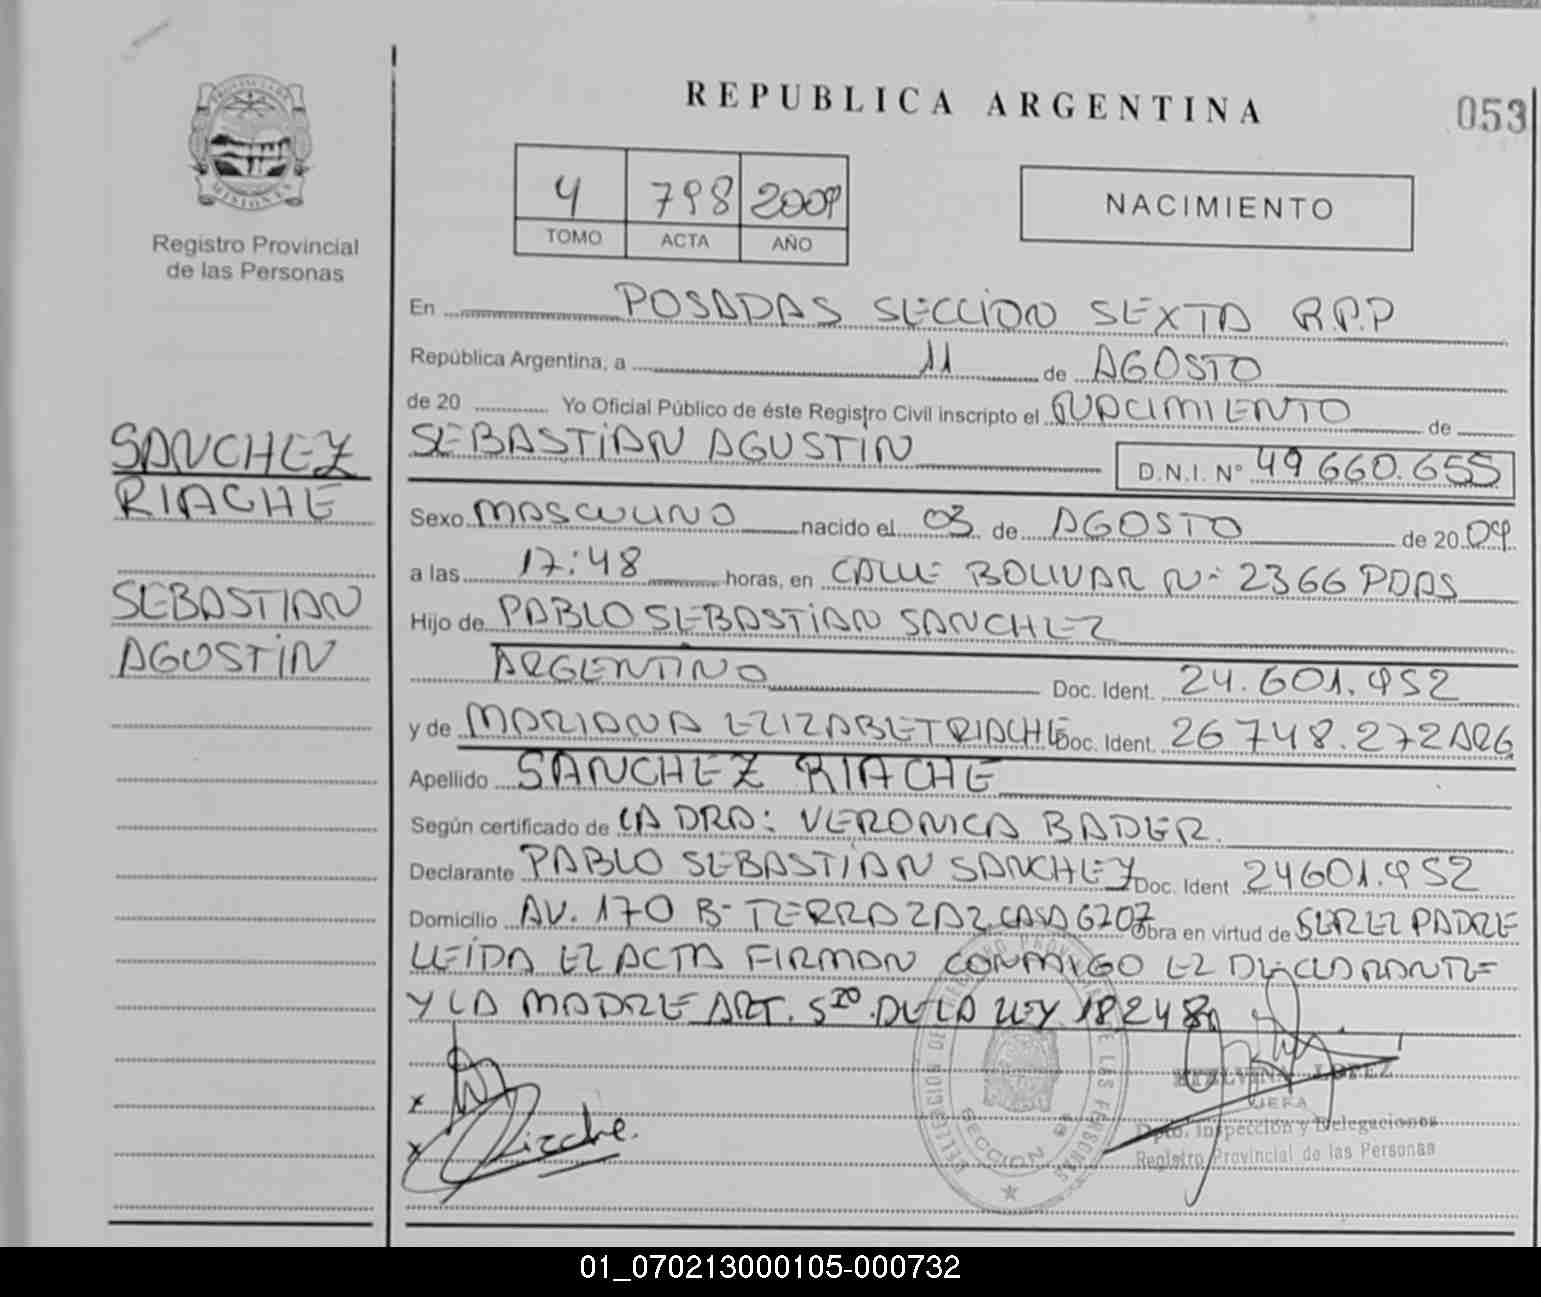 REPUBLICA ARGENTINA
053
PROVINCIA DE MISIONES
Registro Provincial
de las Personas
4 798 2009
TOMO ACTA AÑO
NACIMIENTO
En POSADAS SECCION SEXTA R.P.P
República Argentina, a 11 de AGOSTO
de 20 Yo Oficial Público de éste Registro Civil inscripto el NACIMIENTO de
SEBASTIAN AGUSTIN D.N.I. Nº 49 660.655
SANCHEZ
RIACHE
SEBASTIAN
AGUSTIN
Sexo MASCULINO nacido el 03 de AGOSTO de 20 09
a las 17:48 horas, en CALLE BOLIVAR Nº 2366 PDAS
Hijo de PABLO SEBASTIAN SANCHEZ
ARGENTINO Doc. Ident. 24.601.952
y de MARIANA ELIZABET RIACHE Doc. Ident. 26748.272 ARG
Apellido SANCHEZ RIACHE
Según certificado de LA DRA: VERONICA BADER.
Declarante PABLO SEBASTIAN SANCHEZ Doc. Ident 24601.952
Domicilio AV. 170 Bº TERRAZAZ CASA 6207 Obra en virtud de SER EL PADRE
LEIDA EL ACTA FIRMAN CONMIGO EL DECLARANTE
Y LA MADRE ART. 5to. DE LA LEY 18248
x
x Riache.
DELEGACION DEL REGISTRO PROVINCIAL DE LAS PERSONAS
SECCION 6ª
LOPEZ
JEFA
Dpto. Inspección y Delegaciones
Registro Provincial de las Personas
01_070213000105-000732